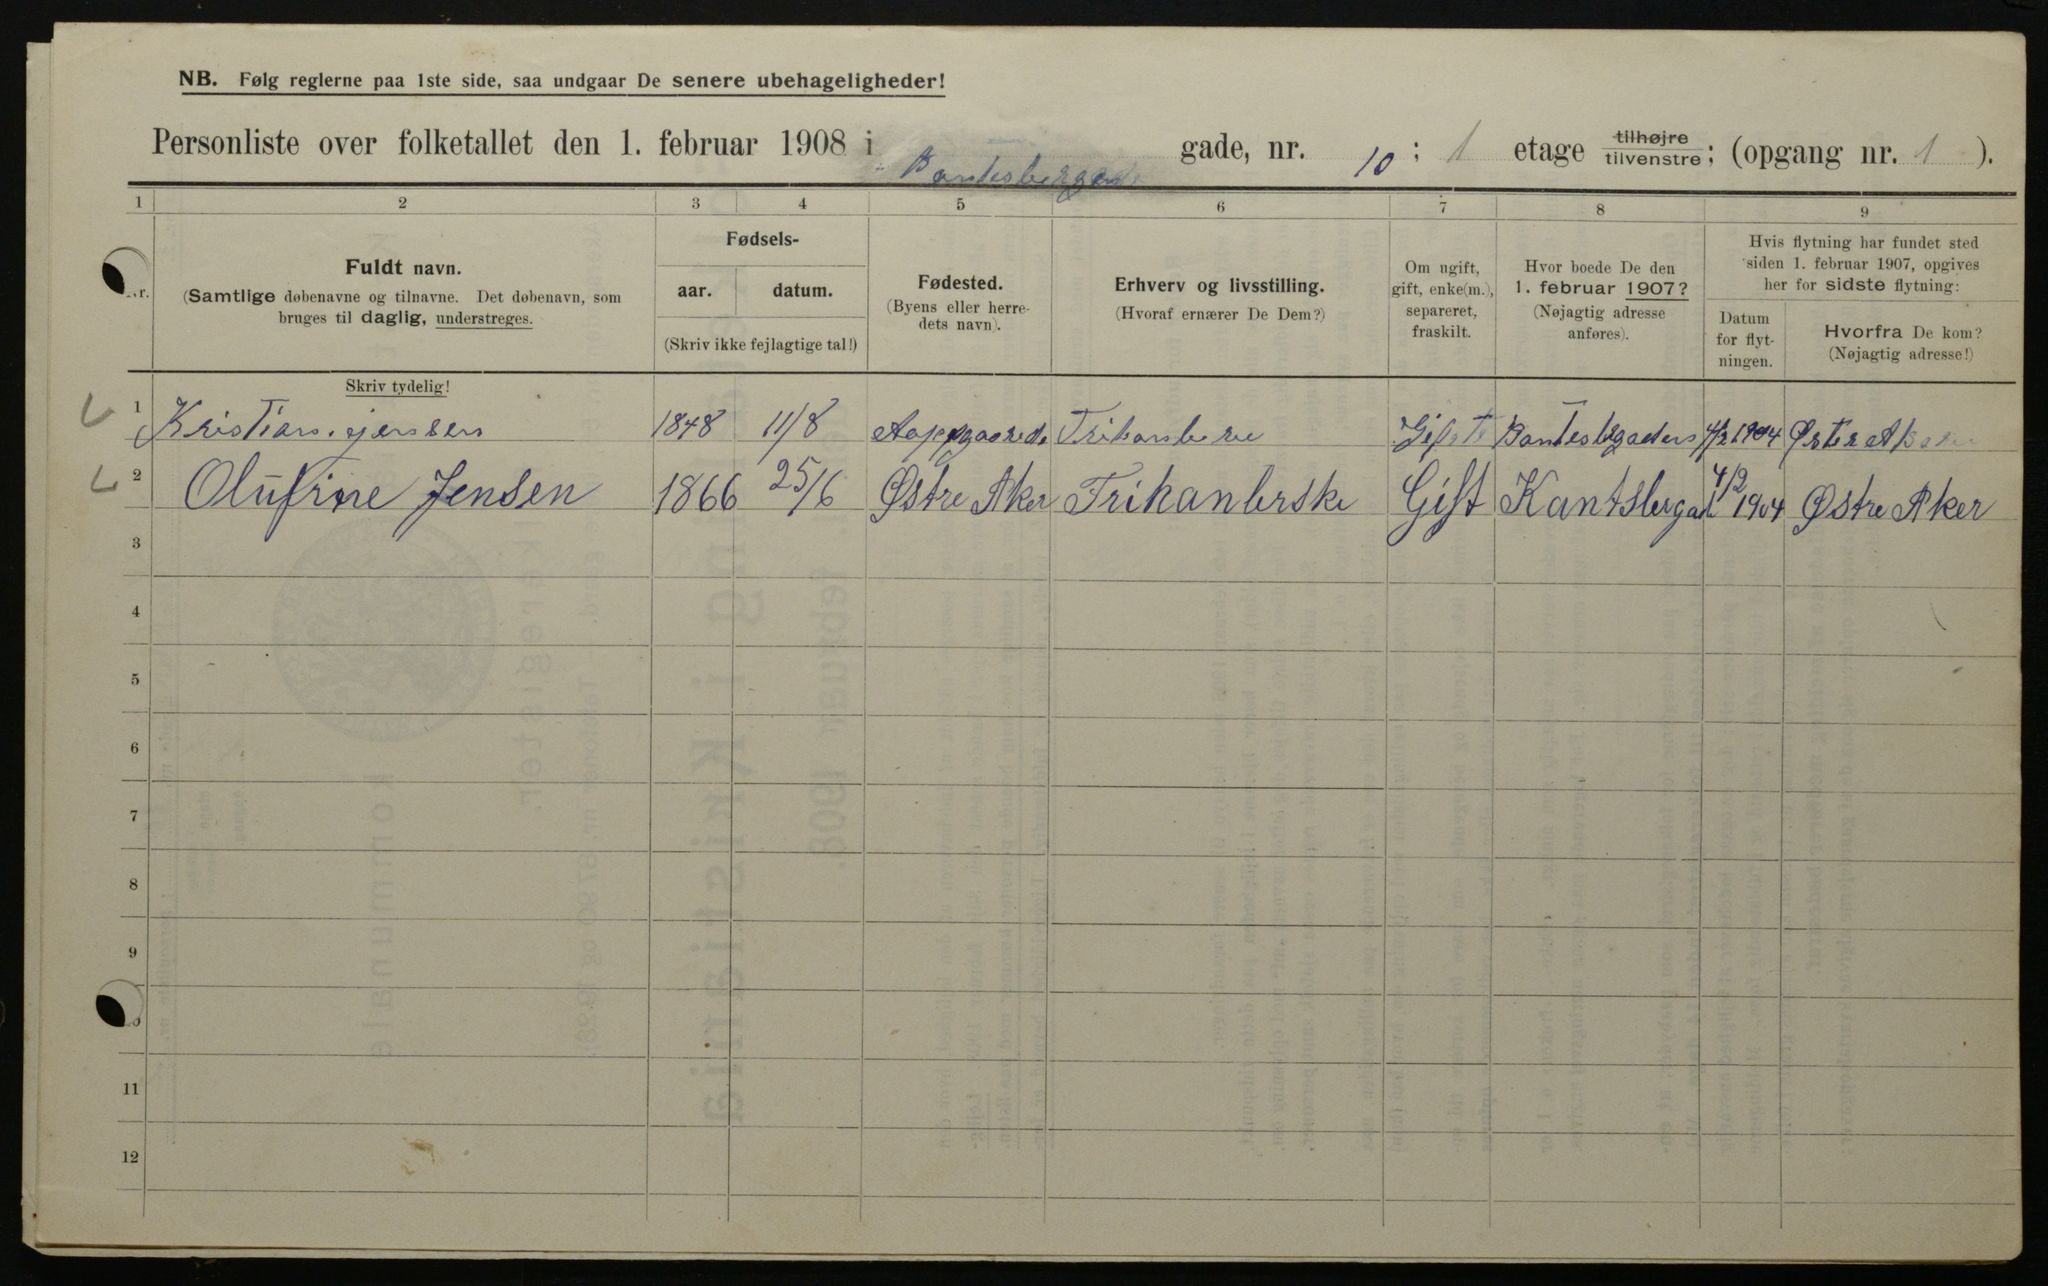 NB. Følg reglerne paa 1ste side, saa undgaar De senere ubehageligheder!
Personliste over folketallet den 1. februar 1908 i gade, nr. 10 ; 1 etage tilhøjre tilvenstre ; (opgang nr. 1 ).
1 2 3 4 5 6 7 8 9
Nr.
Fuldt navn.
(Samtlige døbenavne og tilnavne. Det døbenavn, som
bruges til daglig, understreges.
Skriv tydelig!
Fødsels-
aar. datum.
(Skriv ikke fejlagtige tal!)
Fødested.
(Byens eller herre-
dets navn).
Erhverv og livsstilling.
(Hvoraf ernærer De Dem?)
Om ugift,
gift, enke(m.),
separeret,
fraskilt.
Hvor boede De den
1. februar 1907?
(Nøjagtig adresse
anføres).
Hvis flytning har fundet sted
siden 1. februar 1907, opgives
her for sidste flytning:
Datum
for flyt-
ningen.
Hvorfra De kom?
(Nøjagtig adresse!)
1 Kristian jensen 1848 11/8 4/2 1904
2 Olufine Jensen 1866 25/6 Østre Aker Trikanberske Gift Kantsbergad 4/2 1904 Østre Aker
3
4
5
6
7
8
9
11
12